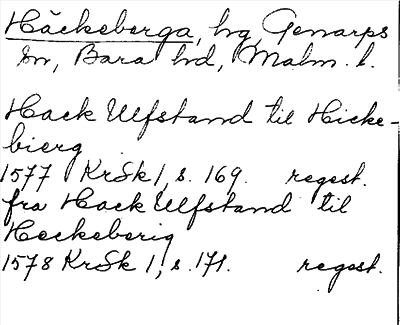 Häckeberga, hg, Genarps
sn, Bara hd, Malm. l.
Hack Ulfstand til Hicke-
bierg
1577 KrSk 1, s. 169. regest.
fra Hack Ulfstand til
Heckeberig
1578 KrSk 1, s. 171. regest.